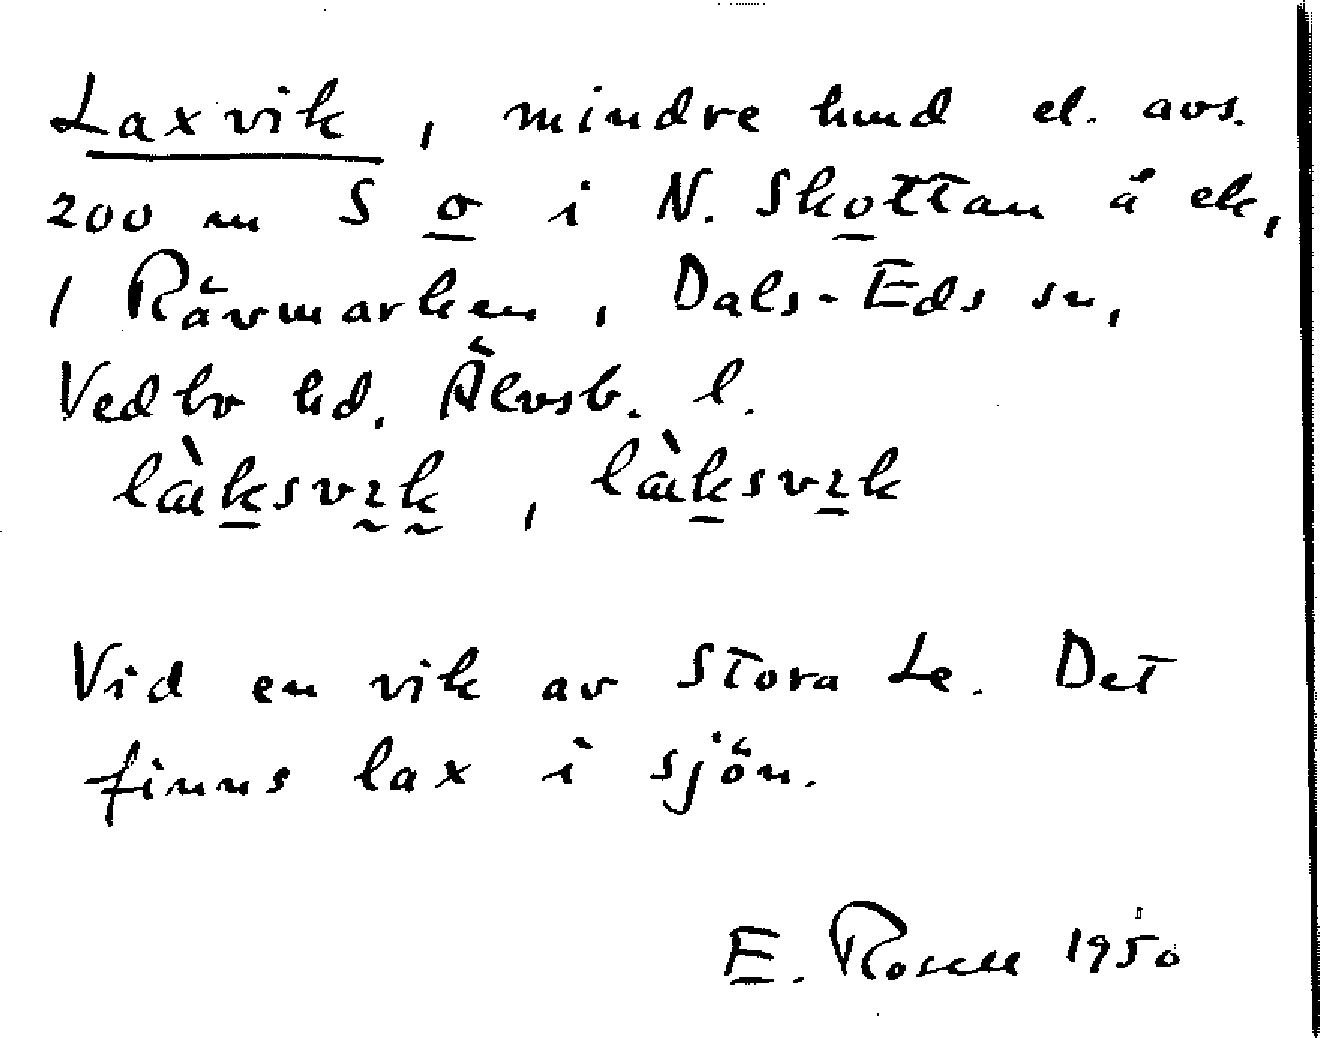 Laxvik, mindre hmd el. avs.
200 m S o i N. Skottan å ek,
1 Rävmarken, Dals-Eds sn,
Vedbo hd. Älvsb. l.
làksvɪk, làksvɪk

Vid en vik av Stora Le. Det
finns lax i sjön.

E. Rosell 1950